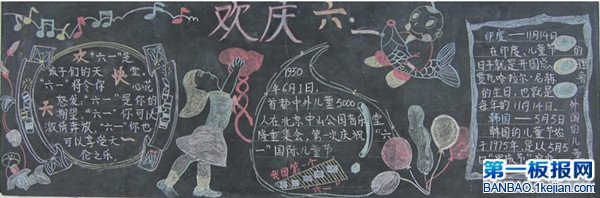 欢庆六·一
欢
快
六
一
"六一"是
孩子们的天堂,
"六一"将令你心花
怒发,"六一"是你的
期望,"六一"你可以
激情奔放,"六一"你也
可以享受天
伦之乐。
1950
年6月1日,
首都中外儿童5000
人在北京中山公园音乐堂
隆重集会,第一次庆祝"六
一"国际儿童节
我国第一个
"六一"
印度——11月14日
在印度,儿童节的
日子就是开国总理
贾瓦哈拉尔·尼赫鲁
的生日,也就是
每年的11月14日。
韩国——5月5日
韩国的儿童节始
于1975年,是从5月5
外国的儿
第一板报网
BANBAO.1kejian.com